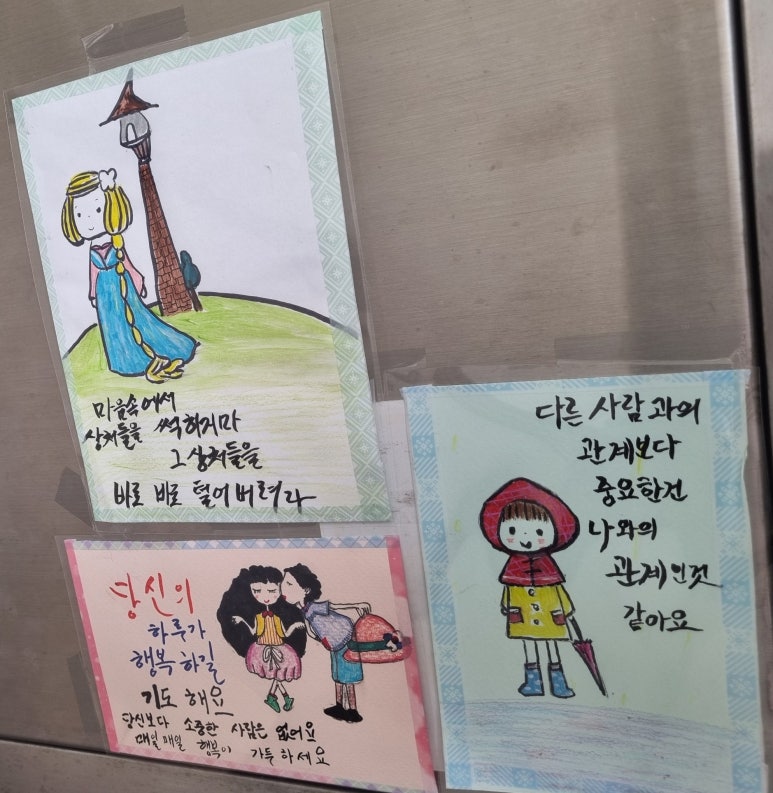 마음속에서
상처들을 썩히지마
그 상처들을
바로 바로 털어버려라
당신의
하루가
행복하길
기도 해요
당신보다 소중한 사람은 없어요
매일매일 행복이 가득하세요
다른 사람과의
관계보다
중요한건
나와의
관계인것
같아요